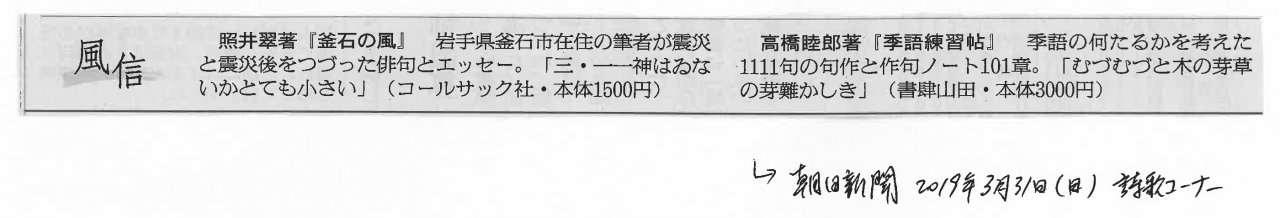 風信
照井翠著『釜石の風』　岩手県釜石市在住の筆者が震災
と震災後をつづった俳句とエッセー。「三・一一神はゐな
いかとても小さい」（コールサック社・本体1500円）
高橋睦郎著『季語練習帖』　季語の何たるかを考えた
1111句の句作と作句ノート101章。「むづむづと木の芽草
の芽難かしき」（書肆山田・本体3000円）
↳ 朝日新聞 2019年3月31日(日) 詩歌コーナー